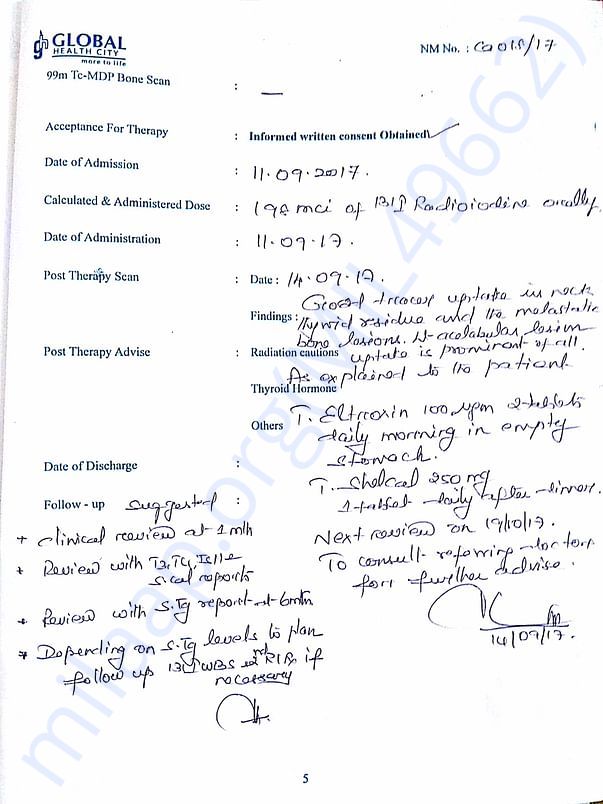 GLOBAL
HEALTH CITY
more to life
NM No. :
99m Tc-MDP Bone Scan : —
Acceptance For Therapy : Informed written consent Obtained
Date of Admission : 11.09.2017.
Calculated & Administered Dose : mci of 131I Radioiodine orally.
Date of Administration : 11.09.17.
Post Therapy Scan : Date : 14.09.17.
Findings : Good tracer uptake in neck
thyroid residue and the metastatic
bone lesions. acetabular lesion
uptake is prominent of all.
Post Therapy Advise : Radiation cautions
As explained to the patient
Thyroid Hormone
T. Eltroxin 100 2 tablets
Others
daily morning in empty
stomach.
Date of Discharge :
T. Shelcal 250 mg
1-tablet daily after dinner.
Follow - up suggested :
+ clinical review at 1 mth
Next review on
+ Review with T3, T4,
S.cal reports
To consult referring doctor
for further advise.
+ Review with S.Tg report at 6mth
14/09/17.
* Depending on S.Tg levels to plan
follow up 131I WBS if
necessary
5
milaap.org(MIL49662)